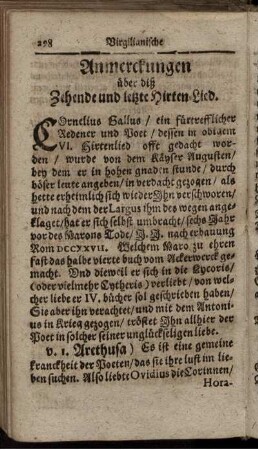 298 Virgilianische
Anmerckungen
über diß
Zehende und letzte Hirten-Lied.
COrnelius Gallus / ein fürtrefflicher
Redener und Poet / dessen in obigem
VI. Hirtenlied offt gedacht wor-
den / wurde von dem Käyser Augusten/
bey dem er in hohen gnaden stunde / durch
böser leute angeben / in verdacht gezogen / als
hette er heimlich sich wieder Ihn verschworen/
und nach dem der Largus ihm des wegen ange-
klaget/hat er sich selbst umbracht/sechs Jahr
vor des Marons Todt, J. nach erbauung
Rom DCCXXVII. Welchem Maro zu ehren
fast das halbe vierte buch vom Ackerwerck ge-
macht. Und dieweil er sich in die Lycoris/
(oder vielmehr Cytheris) verliebt / von wel-
cher liebe er IV. bücher sol geschrieben haben/
Sie aber ihn verachtet / und mit dem Antoni-
us in Krieg gezogen/ tröstet Ihn allhier der
Poet in solcher seiner unglückseligen liebe.
v. 1. Arethusa) Es ist eine gemeine
kranckheit der Poeten/das sie ihre lust im lie-
ben suchen. Also liebte Ovidius die Corinnen/
Hora-